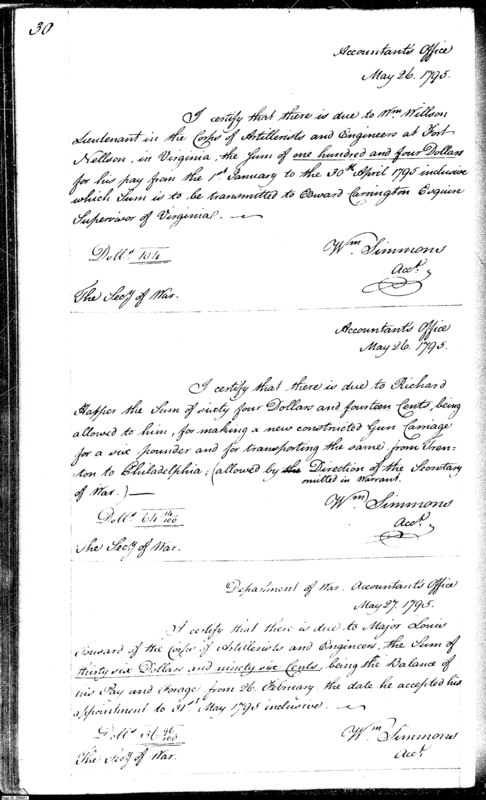 30
Accountant's Office
May 26. 1795.
I certify that there is due to Wm Willson
Lieutenant in the Corps of Artillerists and Engineers at Fort
Nellson, in Virginia, the Sum of one hundred and four Dollars
for his pay from the 1st January to the 30th April 1795 inclusive
which Sum is to be transmitted to Edward Carrington Esquire
Supervisor of Virginia.
Dolls. 104
Wm. Simmons
Acct.
The Secy of War.
Accountant's Office
May 26. 1795.
I certify that there is due to Richard
Happer the Sum of sixty four Dollars and fourteen Cents, being
allowed to him, for making a new constructed Gun Carriage
for a six pounder and for transporting the same from Tren-
ton to Philadelphia; (allowed by the Direction of the Secretary
of War.)
omitted in Warrant.
Wm. Simmons
Acct.
Dolls. 64 14/100
The Secy of War.
Department of War. Accountant's Office
May 27. 1795.
I certify that there is due to Major Louis
Tousard of the Corps of Artillerists and Engineers, the Sum of
thirty six Dollars and ninety six Cents, being the Balance of
his Pay and Forage from 26 February the date he accepted his
appointment to 31st May 1795 inclusive.
Dolls. 36 96/100
Wm Simmons
Acct.
The Secy of War.